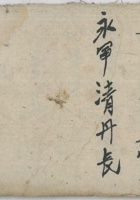 永軍清丹長